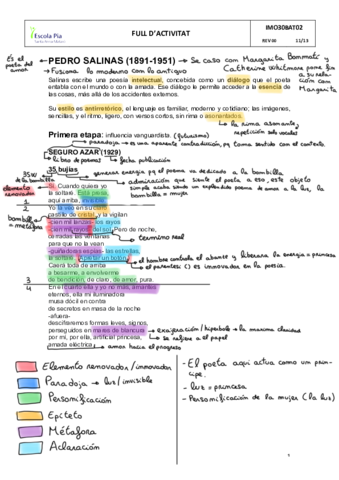 Escola Pia
FULL D'ACTIVITAT
IMO308AT02
REV 00 11/13
Es el poeta del amor
PEDRO SALINAS (1891-1951) → Se caso con Margarita Bonmatí y
Catherine Whitmore pone fin a su relación con Margarita
→ Fusiona lo moderno con lo antiguo
Salinas escribe una poesía intelectual, concebida como un diálogo que el poeta
entabla con el mundo o con la amada. Ese diálogo le permite acceder a la esencia de
las cosas, más allá de los accidentes externos.
Su estilo es antirretórico, el lenguaje es familiar, moderno y cotidiano; las imágenes,
sencillas, y el ritmo, ligero, con versos cortos, sin rima o asonantados.
la rima asonante,
repetición solo vocales
Primera etapa: influencia vanguardista (futurismo)
paradoja → es una aparente contradicción, pq como sentido con el contexto
SEGURO AZAR (1929)
lib de poemas
fecha publicación
35 bujías
generan energía pq el poema va dedicado a la bombilla
35w de la bombilla
admiración que siente el poeta a eso, este objeto
elemento renovador
Sí. Cuando quiera yo
la soltaré. Está presa,
aquí arriba, invisible.
1
2
Yo la veo en su claro
castillo de cristal, y la vigilan
bombilla = metáfora
-cien mil lanzas- los rayos
-cien mil rayos- del sol. Pero de noche,
cerradas las ventanas
termino real
para que no la vean
-guiñadoras espías- las estrellas,
la soltaré. (Apretar un botón.)
el hombre controla el abusar y liberar la energía = princesa
Caerá toda de arriba
el parentesis () es innovador en la poesia.
a besarme, a envolverme
de bendición, de claro, de amor, pura.
3
4
En el cuarto ella y yo no más, amantes
eternos, ella mi iluminadora
musa dócil en contra
de secretos en masa de la noche
-afuera-
descifraremos formas leves, signos,
perseguidos en mares de blancura
exageración / hipérbole → la maxima claridad
por mí, por ella, artificial princesa,
se refiere a el papel
amada eléctrica.
amor hacia el progreso
Elemento renovador / innovador
Paradoja → luz / invisible
Personificación
Epíteto
Metáfora
Aclaración
- El poeta aqui actua como un principe.
- luz = princesa
- Personificación de la mujer (la luz)